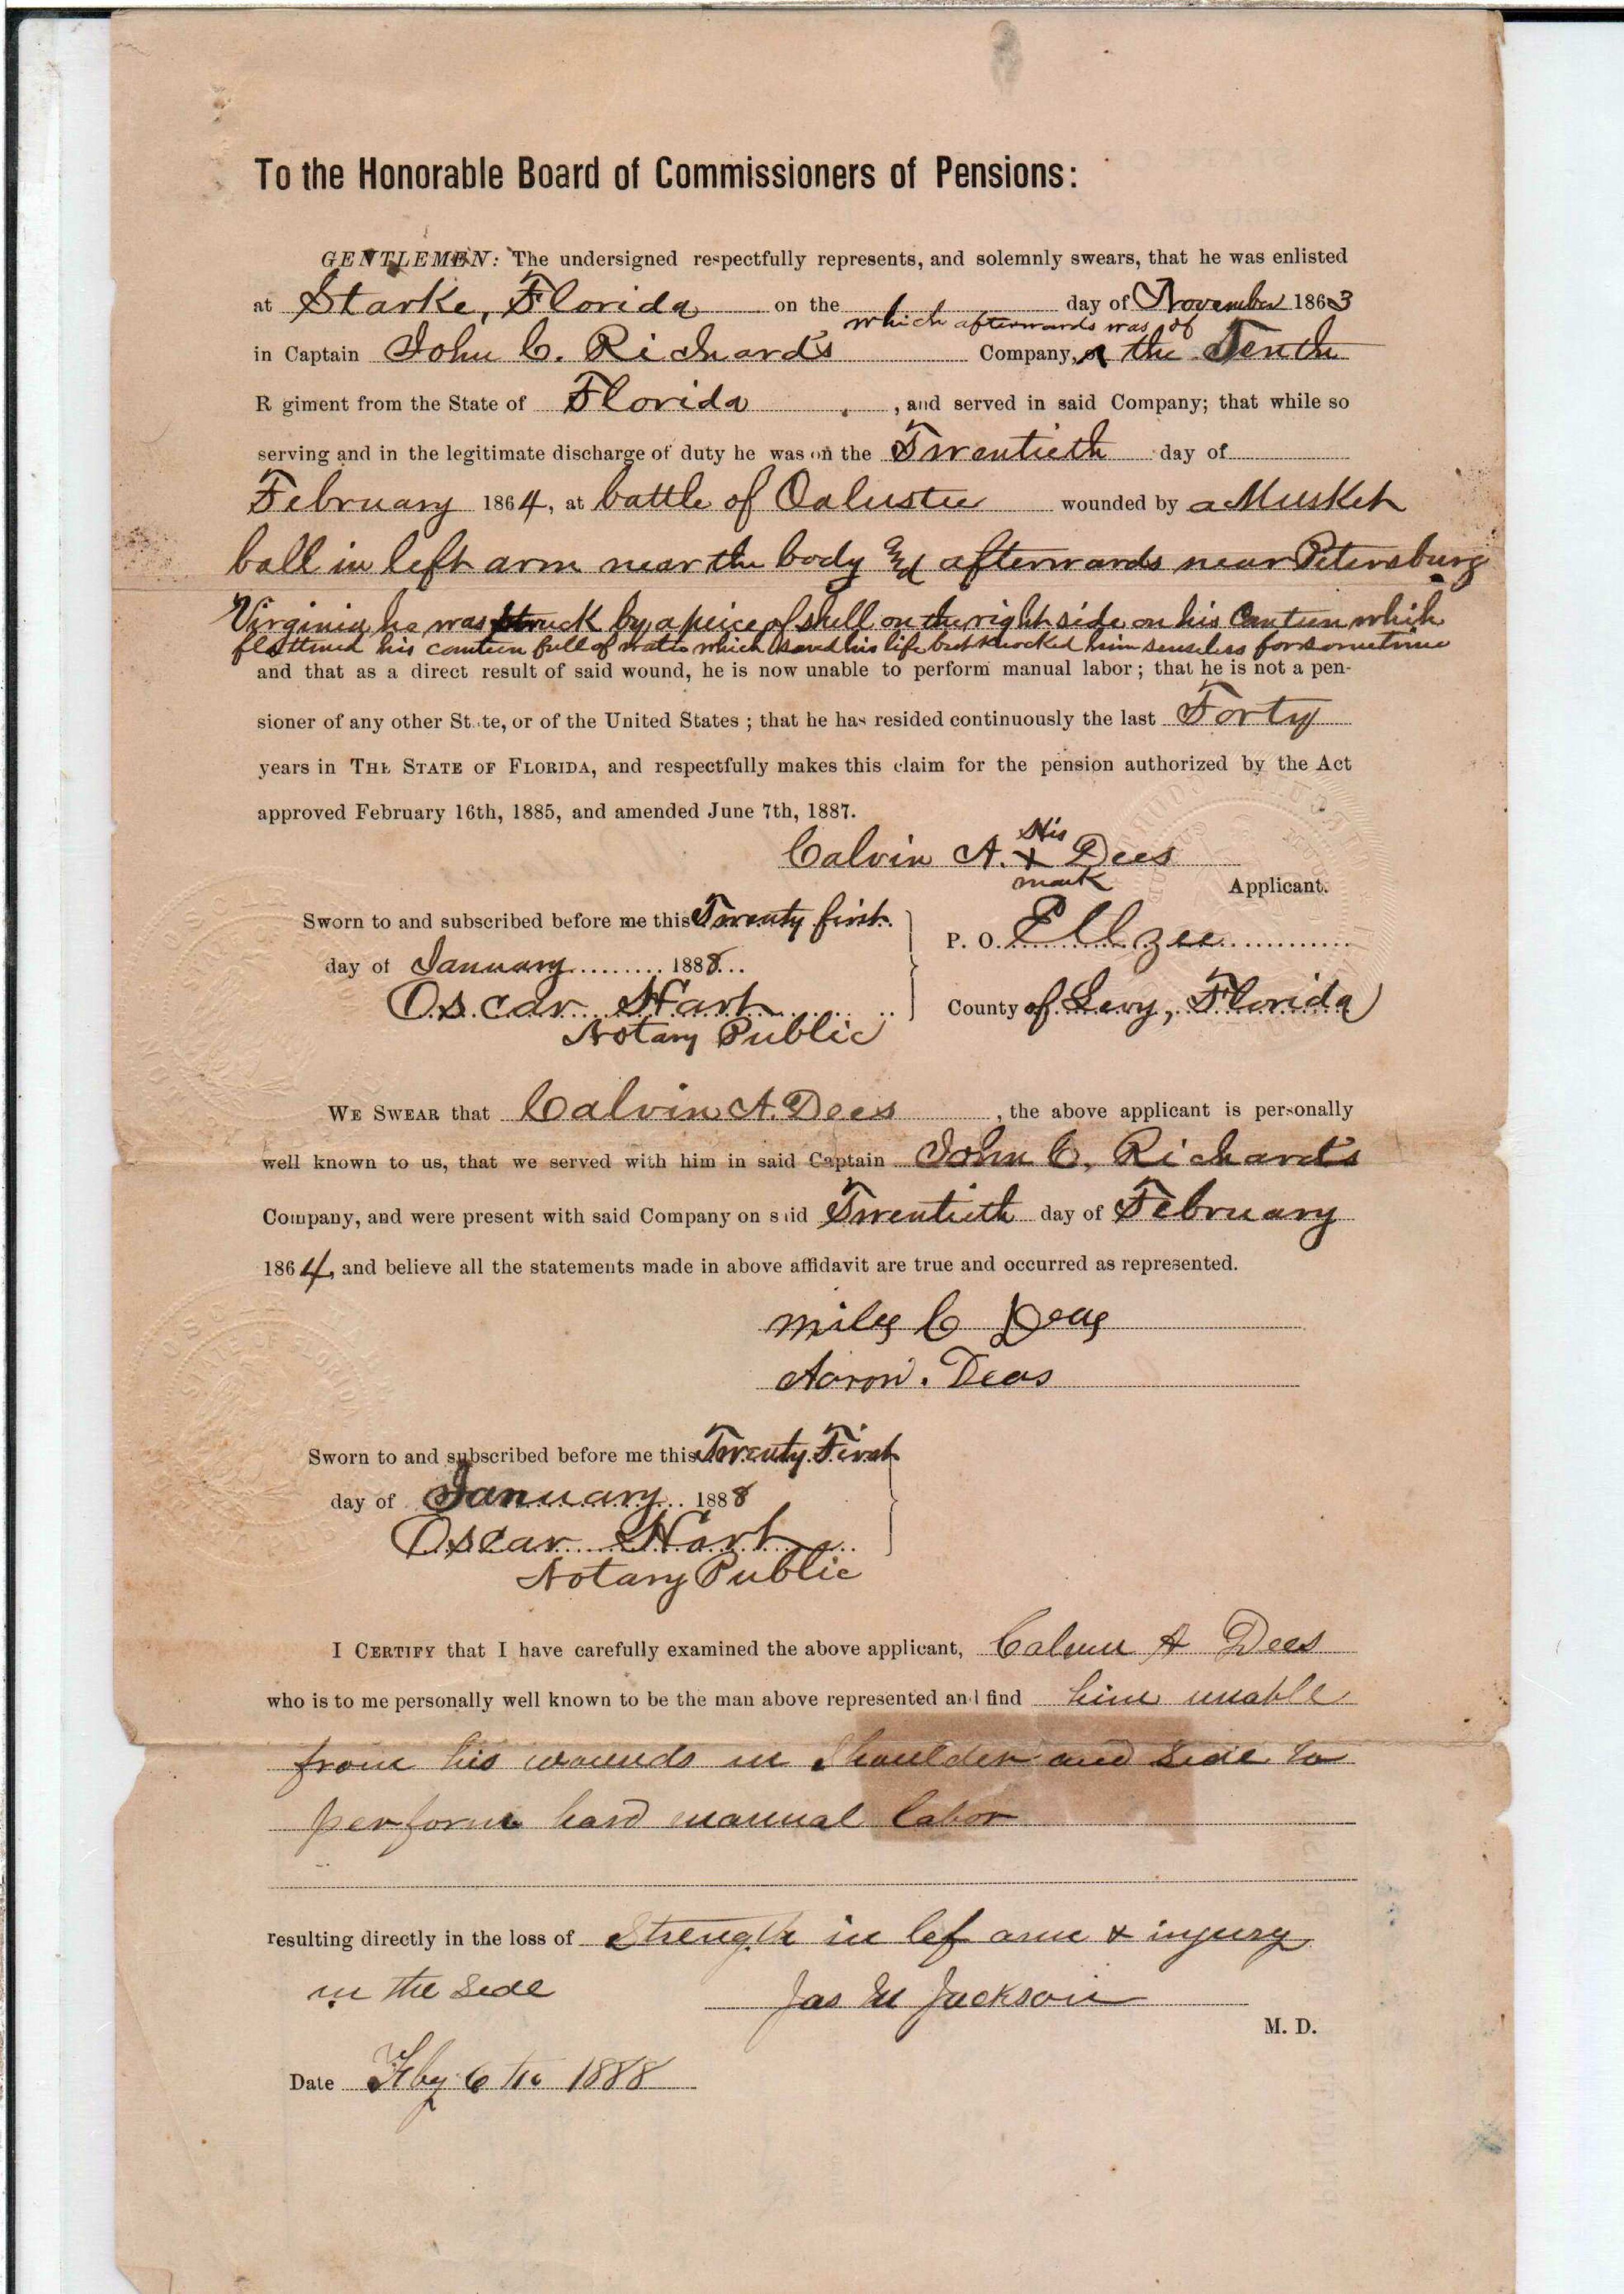 To the Honorable Board of Commissioners of Pensions:
GENTLEMEN: The undersigned respectfully represents, and solemnly swears, that he was enlisted
at Starke, Florida on the day of November 1863
which afterwards was of
in Captain John C. Richard's Company, the Tenth
R giment from the State of Florida, and served in said Company; that while so
serving and in the legitimate discharge of duty he was on the Twentieth day of
February 1864, at battle of Oalustee wounded by a Musket
ball in left arm near the body & afterwards near Petersburg
Virginia he was struck by a peice of shell on the right side on his Canteen which
flattened his canteen full of water which saved his life but knocked him senseless for sometime
and that as a direct result of said wound, he is now unable to perform manual labor; that he is not a pen-
sioner of any other St te, or of the United States; that he has resided continuously the last Forty
years in THE STATE OF FLORIDA, and respectfully makes this claim for the pension authorized by the Act
approved February 16th, 1885, and amended June 7th, 1887.
His
Calvin A. x Dees
mark
Applicant.
Sworn to and subscribed before me this Twenty first
P. O. Ellzee
day of January 1888
Oscar Hart
County of Levy, Florida
Notary Public
WE SWEAR that Calvin A. Dees, the above applicant is personally
well known to us, that we served with him in said Captain John C. Richard's
Company, and were present with said Company on said Twentieth day of February
1864, and believe all the statements made in above affidavit are true and occurred as represented.
Miles C Deas
Aaron. Deas
Sworn to and subscribed before me this Twenty First
day of January 1888
Oscar Hart
Notary Public
I CERTIFY that I have carefully examined the above applicant, Calvin A Dees
who is to me personally well known to be the man above represented and find him unable
from his wounds in Shoulder and Side to
perform hard manual labor
resulting directly in the loss of Strength in lef arm & injury
in the Side
Jas M Jackson
M. D.
Date Feby 6th 1888